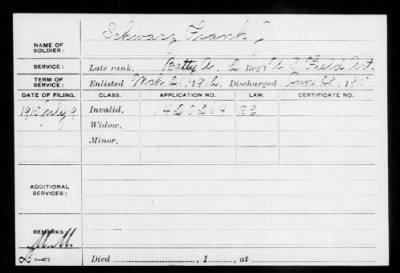 NAME OF SOLDIER: Schwarz Frank J
SERVICE: Late rank, Batty A, 2 Reg't U S Field Art.
TERM OF SERVICE: Enlisted 2, 1912, Discharged June 191
DATE OF FILING. CLASS. APPLICATION NO. LAW. CERTIFICATE NO.
1915 July 9 Invalid,
Widow,
Minor,
ADDITIONAL SERVICES:
REMARKS:
Died ........, 1...., at ........